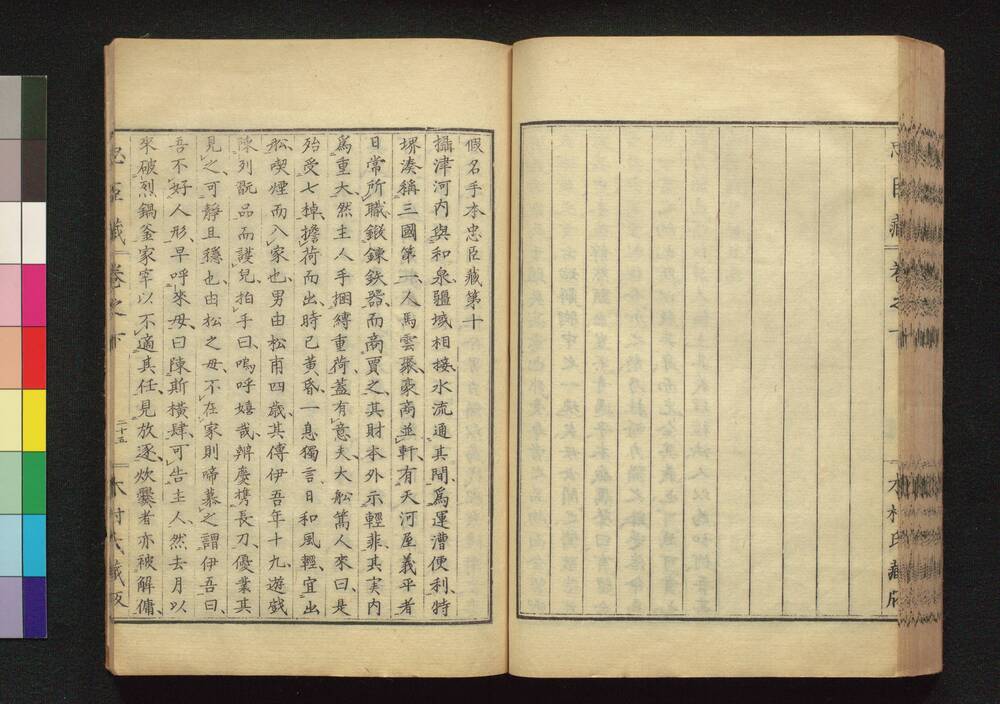 忠臣藏
卷之下
木村氏藏版
假名手本忠臣藏第十
攝津河内與和泉疆域相接水流通其間爲運漕便利特
堺湊稱三國第一人馬雲聚豪商並軒有天河屋義平者
日常所職鍛鍊鉄器而商賈之其財本外示輕菲其実内
爲重大然主人手捆縛重荷蓋有意夫大舩篙人來曰是
殆受七棹擔荷而出時已黄昏一息獨言日和風輕宜出
舩喫煙而入家也男由松甫四歳其傳伊吾年十九遊戯
陳列翫品而護兒拍手曰嗚呼嬉哉辨慶携長刀優業其
見之可靜且穩也由松之母不在家則啼慕之謂伊吾曰
吾不好人形早呼來母曰陳斯横肆可告主人然去月以
來破烈鍋釜家宰以不適其任見放逐炊爨者亦被解傭
忠臣藏
卷之下
二十五
木村氏藏版